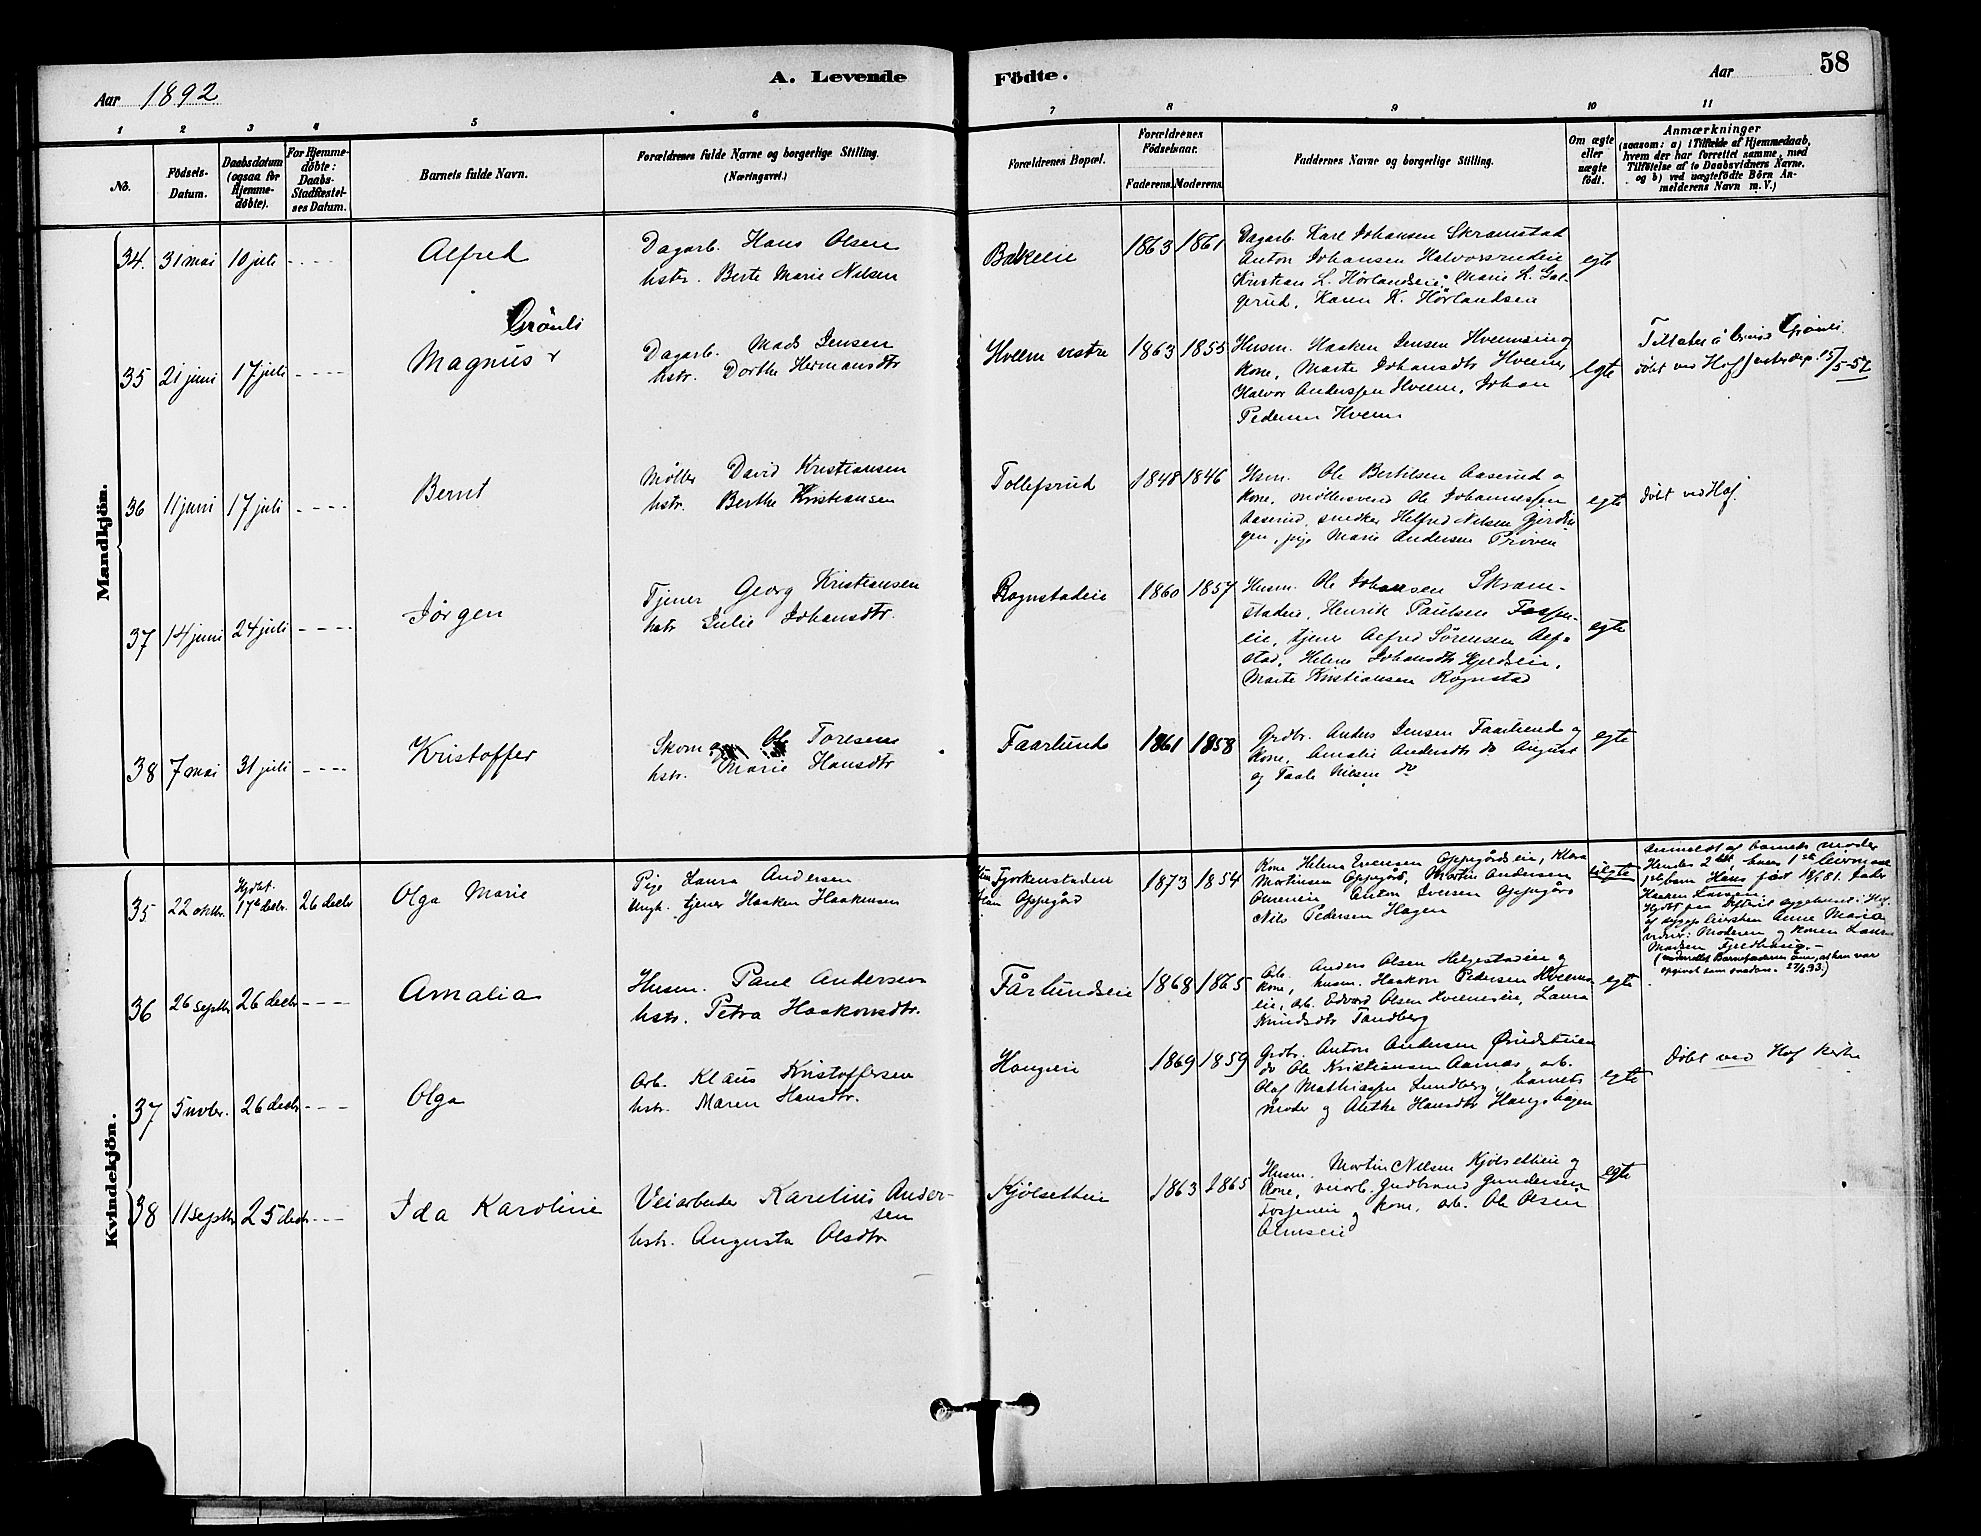 58
A. Levende Födte.
Aar 1892
Aar
1 2 3 4 5 6 7 8 9 10 11
No.
Födsels-Datum.
Daabsdatum (ogsaa for Hjemmedöbte).
For Hjemmedöbte: Daabs-Stadfæstelses Datum.
Barnets fulde Navn.
Forældrenes fulde Navne og borgerlige Stilling. (Næringsvei.)
Forældrenes Bopæl.
Forældrenes Födselsaar.
Faderens. Moderens.
Faddernes Navne og borgerlige Stilling.
Om ægte eller uægte födt.
Anmærkninger
(saasom: a) i Tilfælde af Hjemmedaab, hvem der har forrettet samme, med Tilföielse af to Daabsvidners Navne. og b) ved uægtefödte Börn Anmelderens Navn m. V.)
Mandkjön.
34. 31 mai 10 juli ---- Alfred
Dagarb. Hans Olsen
hstr. Berte Marie Nilsen
Bakkeie 1863 1861
Dagarb. Karl Johansen Skramstad
Anton Johansen Halvorsrudeie
Kristian L. Hørlandseie, Marie L.
Karen K. Hørlandsen
egte
35 21 juni 17 juli ---- Magnus Grönli
Dagarb. Mads Jensen
hstr. Dorthe Hermansdtr
Hveem vestre 1863 1855
Husm. Haaken Jensen Hveemseie og
Kone, Marte Johansdtr Hveem,
Halvor Anderssen Hveem, Johan
Pedersen Hveem
egte
Grönli
döbt ved Hof 15/5-57
36 11 juni 17 juli ---- Bernt
Møller David Kristiansen
hstr. Berthe Kristiansen
Tollefsrud 1848 1846
Hsm. Ole Bertilsen Aaserud o
Kone, møllersvend Ole Johannessen
Aaserud, snedker Helfred Nilsen
pige Marie Andersen Prøven
egte
döbt ved Hof
37 14 juni 24 juli ---- Jørgen
Tjener Georg Kristiansen
hstr Julie Johansdtr.
Rognstadeie 1860 1857
Husm. Ole Johansen Skram-
stadeie, Henrik Paulsen Fossen-
eie, tjener Alfred Sørensen Alf-
stad, Helene Johansdtr
Marte Kristiansen Rognstad
egte
38 7 mai 31 juli ---- Kristoffer
Skom Ole Toresen
hstr. Marie Hansdtr
Faarlund 1861 1858
Grdbr. Anders Jensen Faarlund og
Kone, Amalie Andersdtr do August
og Taale Nilsen do
egte
Kvindekjön.
35 22 oktbr. Hjdbt. 17de decbr. 26 decbr Olga Marie
Pige Laura Andersen
Ungk. tjener Haaken Haakensen
Hun Fjorkenstadeie
Han Oppegård
1873 1854
Kone Helene Evensen Oppegårdseie, Klara
Mortinsen Oppegård, Martin Andersen
Anton Iversen Oppegård
Nils Pedersen Hagen
uegte
Anmeldt af barnets moder
Hendes 2det, hans 1ste
Haaken
Anne Marie
vidner: Moderen og konen Laura
Madsen
36 26 septbr 26 decbr ---- Amalia
Husm. Paul Andersen
hstr. Petra Haakonsdtr.
Fårlundseie 1868 1865
Arb. Anders Olsen Helgestadeie og
Kone, husm. Haakon Pedersen Hveems-
eie, arb. Edvard Olsen Hveemseie, Laura
Knudsdtr Tandberg
egte
37 5 novbr. 26 decbr --- Olga
Arb. Klaus Kristoffersen
hstr. Maren Hansdtr.
Haugeie 1869 1859
Grdbr. Anton Andersen
do Ole Kristiansen Aamas, arb.
Olaf Mathiassen Lundberg, barnets
Moder og Alethe Hansdtr Haugshagen
egte
Döbt ved Hof kirke
38 11 septbr 25 decbr --- Ida Karoline
Veiarbeider Karelius Ander-
sen
hstr. Augusta Olsdtr
Kjölsetteie 1863 1865
Husm. Martin Nilsen Kjölsetteie og
Kone, veiarb. Gudbrand Gundersen
Fosseneie og kone, arb. Ole Olsen
egte